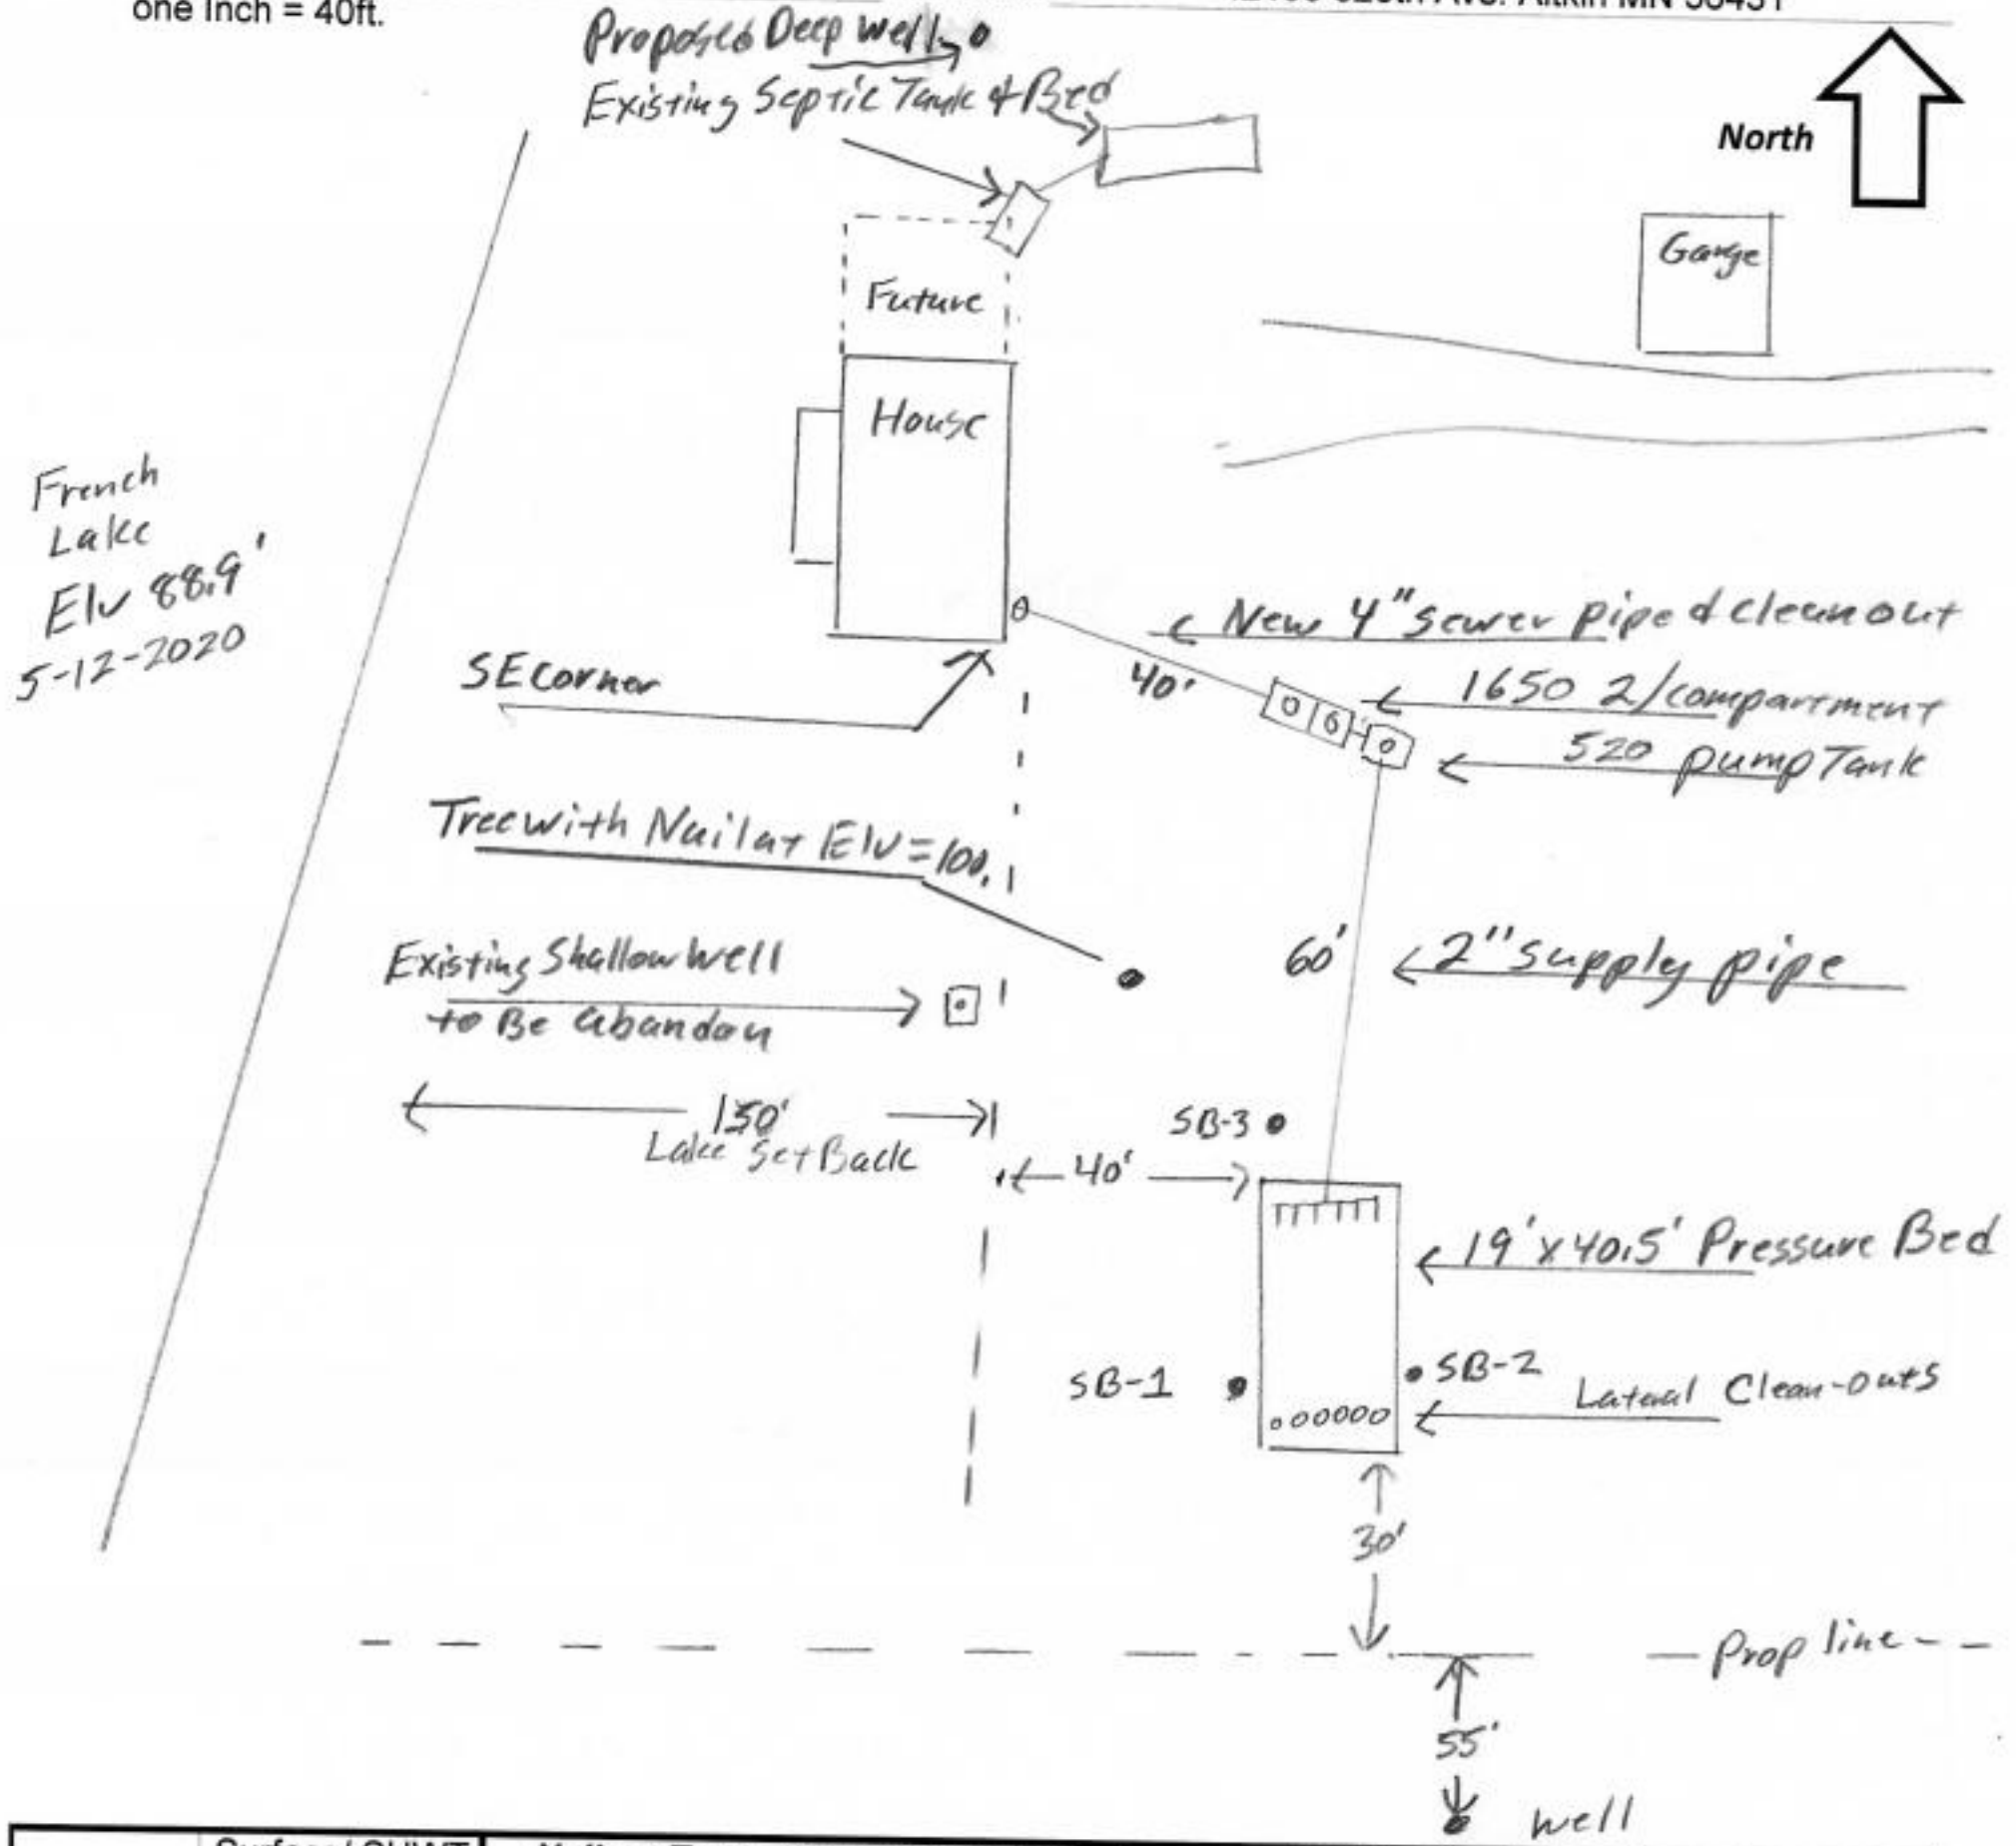 one Inch = 40ft.
Proposed Deep Well
Existing Septic Tank & Bed
North
Garge
Future
House
French
Lake
Elv 88.9'
5-12-2020
New 4" sewer pipe & clean out
40'
1650 2/compartment
520 pump Tank
SE Corner
Tree with Nail at Elv = 100.
Existing Shallow Well
to Be abandon
60'
2" supply pipe
150'
Lake Set Back
SB-3
40'
19' x 40.5' Pressure Bed
SB-1
SB-2
Lateral Clean-outs
30'
Prop line
55'
well